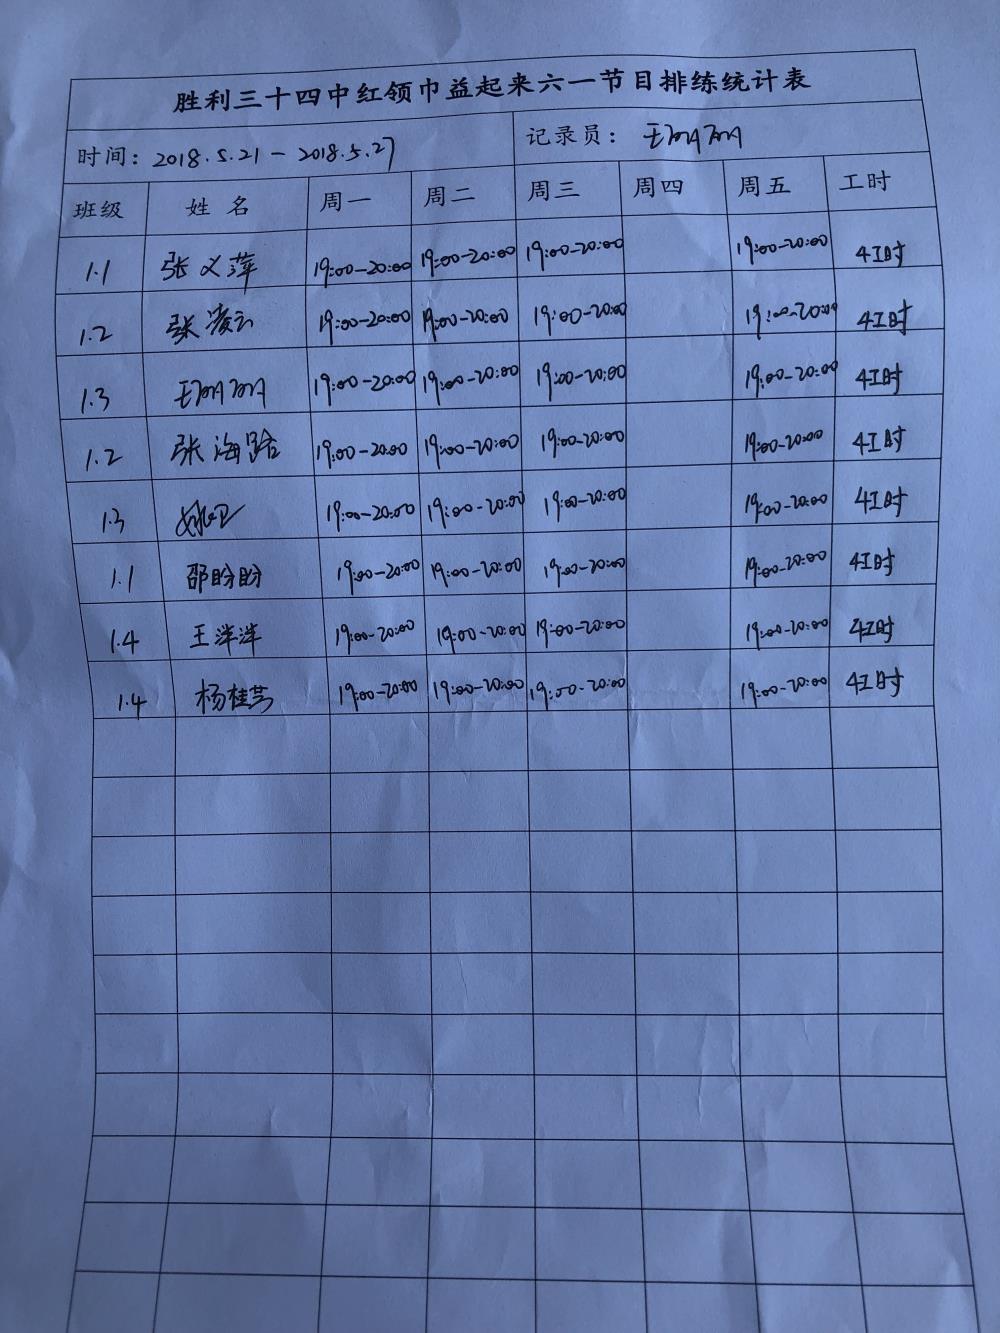 胜利三十四中红领巾益起来六一节目排练统计表
时间：2018.5.21-2018.5.27 记录员：王丽丽
班级 姓名 周一 周二 周三 周四 周五 工时
1.1 张义萍 19:00-20:00 19:00-20:00 19:00-20:00 19:00-20:00 4工时
1.2 张凌云 19:00-20:00 19:00-20:00 19:00-20:00 19:00-20:00 4工时
1.3 王丽丽 19:00-20:00 19:00-20:00 19:00-20:00 19:00-20:00 4工时
1.2 张海路 19:00-20:00 19:00-20:00 19:00-20:00 19:00-20:00 4工时
1.3 19:00-20:00 19:00-20:00 19:00-20:00 19:00-20:00 4工时
1.1 邵盼盼 19:00-20:00 19:00-20:00 19:00-20:00 19:00-20:00 4工时
1.4 王洋洋 19:00-20:00 19:00-20:00 19:00-20:00 19:00-20:00 4工时
1.4 杨桂芸 19:00-20:00 19:00-20:00 19:00-20:00 19:00-20:00 4工时